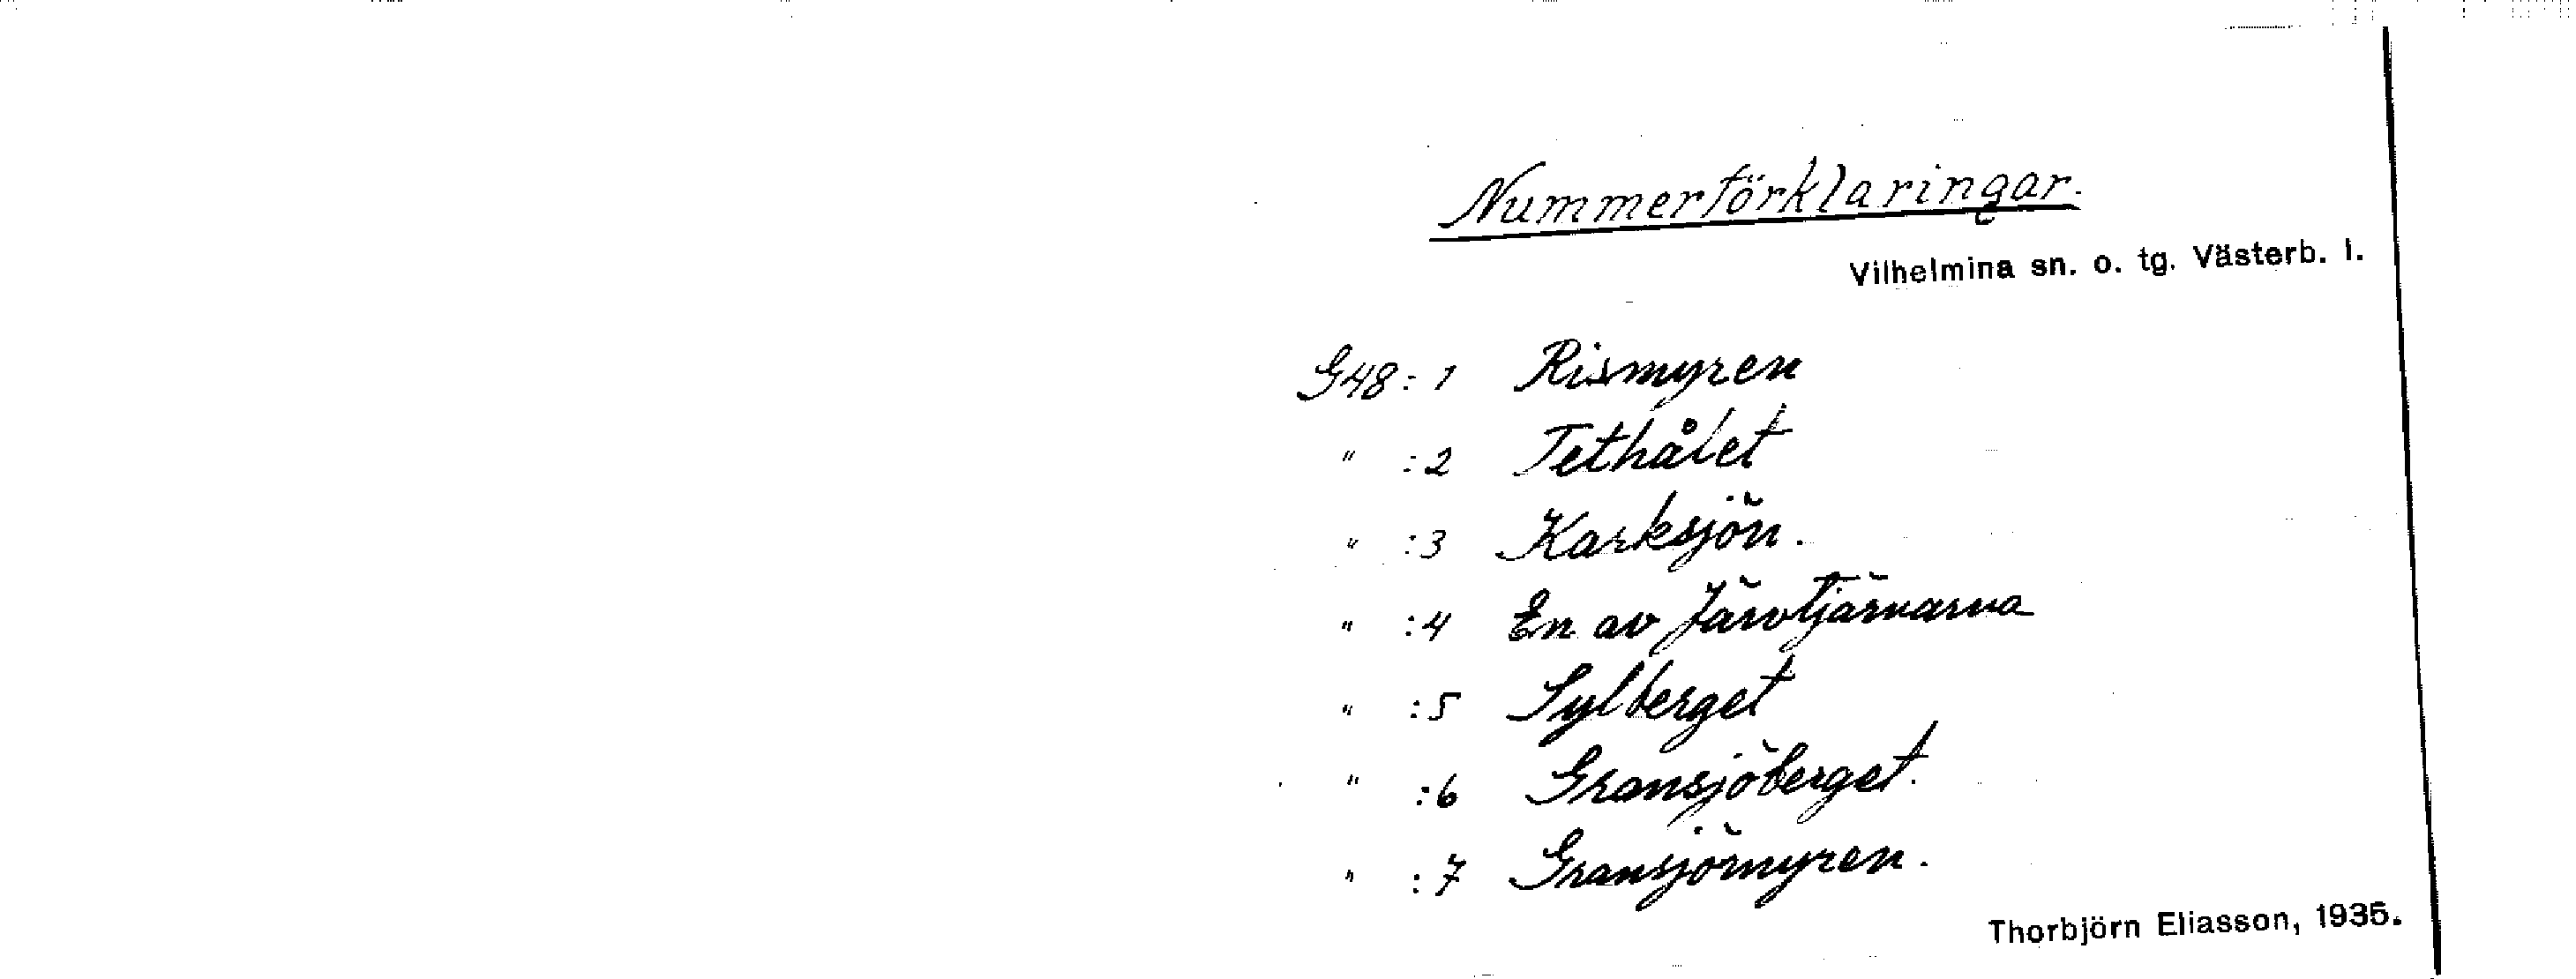 Nummerförklaringar.
Vilhelmina sn. o. tg. Västerb. l.
G48 : 1 Rismyren
" : 2 Tethålet
" : 3 Karksjön.
" : 4 En av Järvtjärnarna
" : 5 Sylberget
" : 6 Gransjöberget.
" : 7 Gransjömyren.
Thorbjörn Eliasson, 1935.